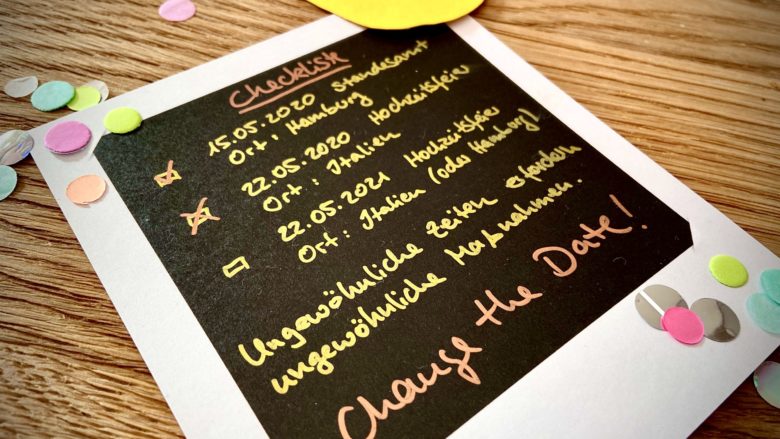 Checkliste
15.05.2020 Standesamt
Ort: Hamburg
22.05.2020 Hochzeitsfeier
Ort: Italien
22.05.2021 Hochzeitsfeier
Ort: Italien (oder Hamburg)
Ungewöhnliche Zeiten erfordern
ungewöhnliche Maßnahmen.
Change the Date!